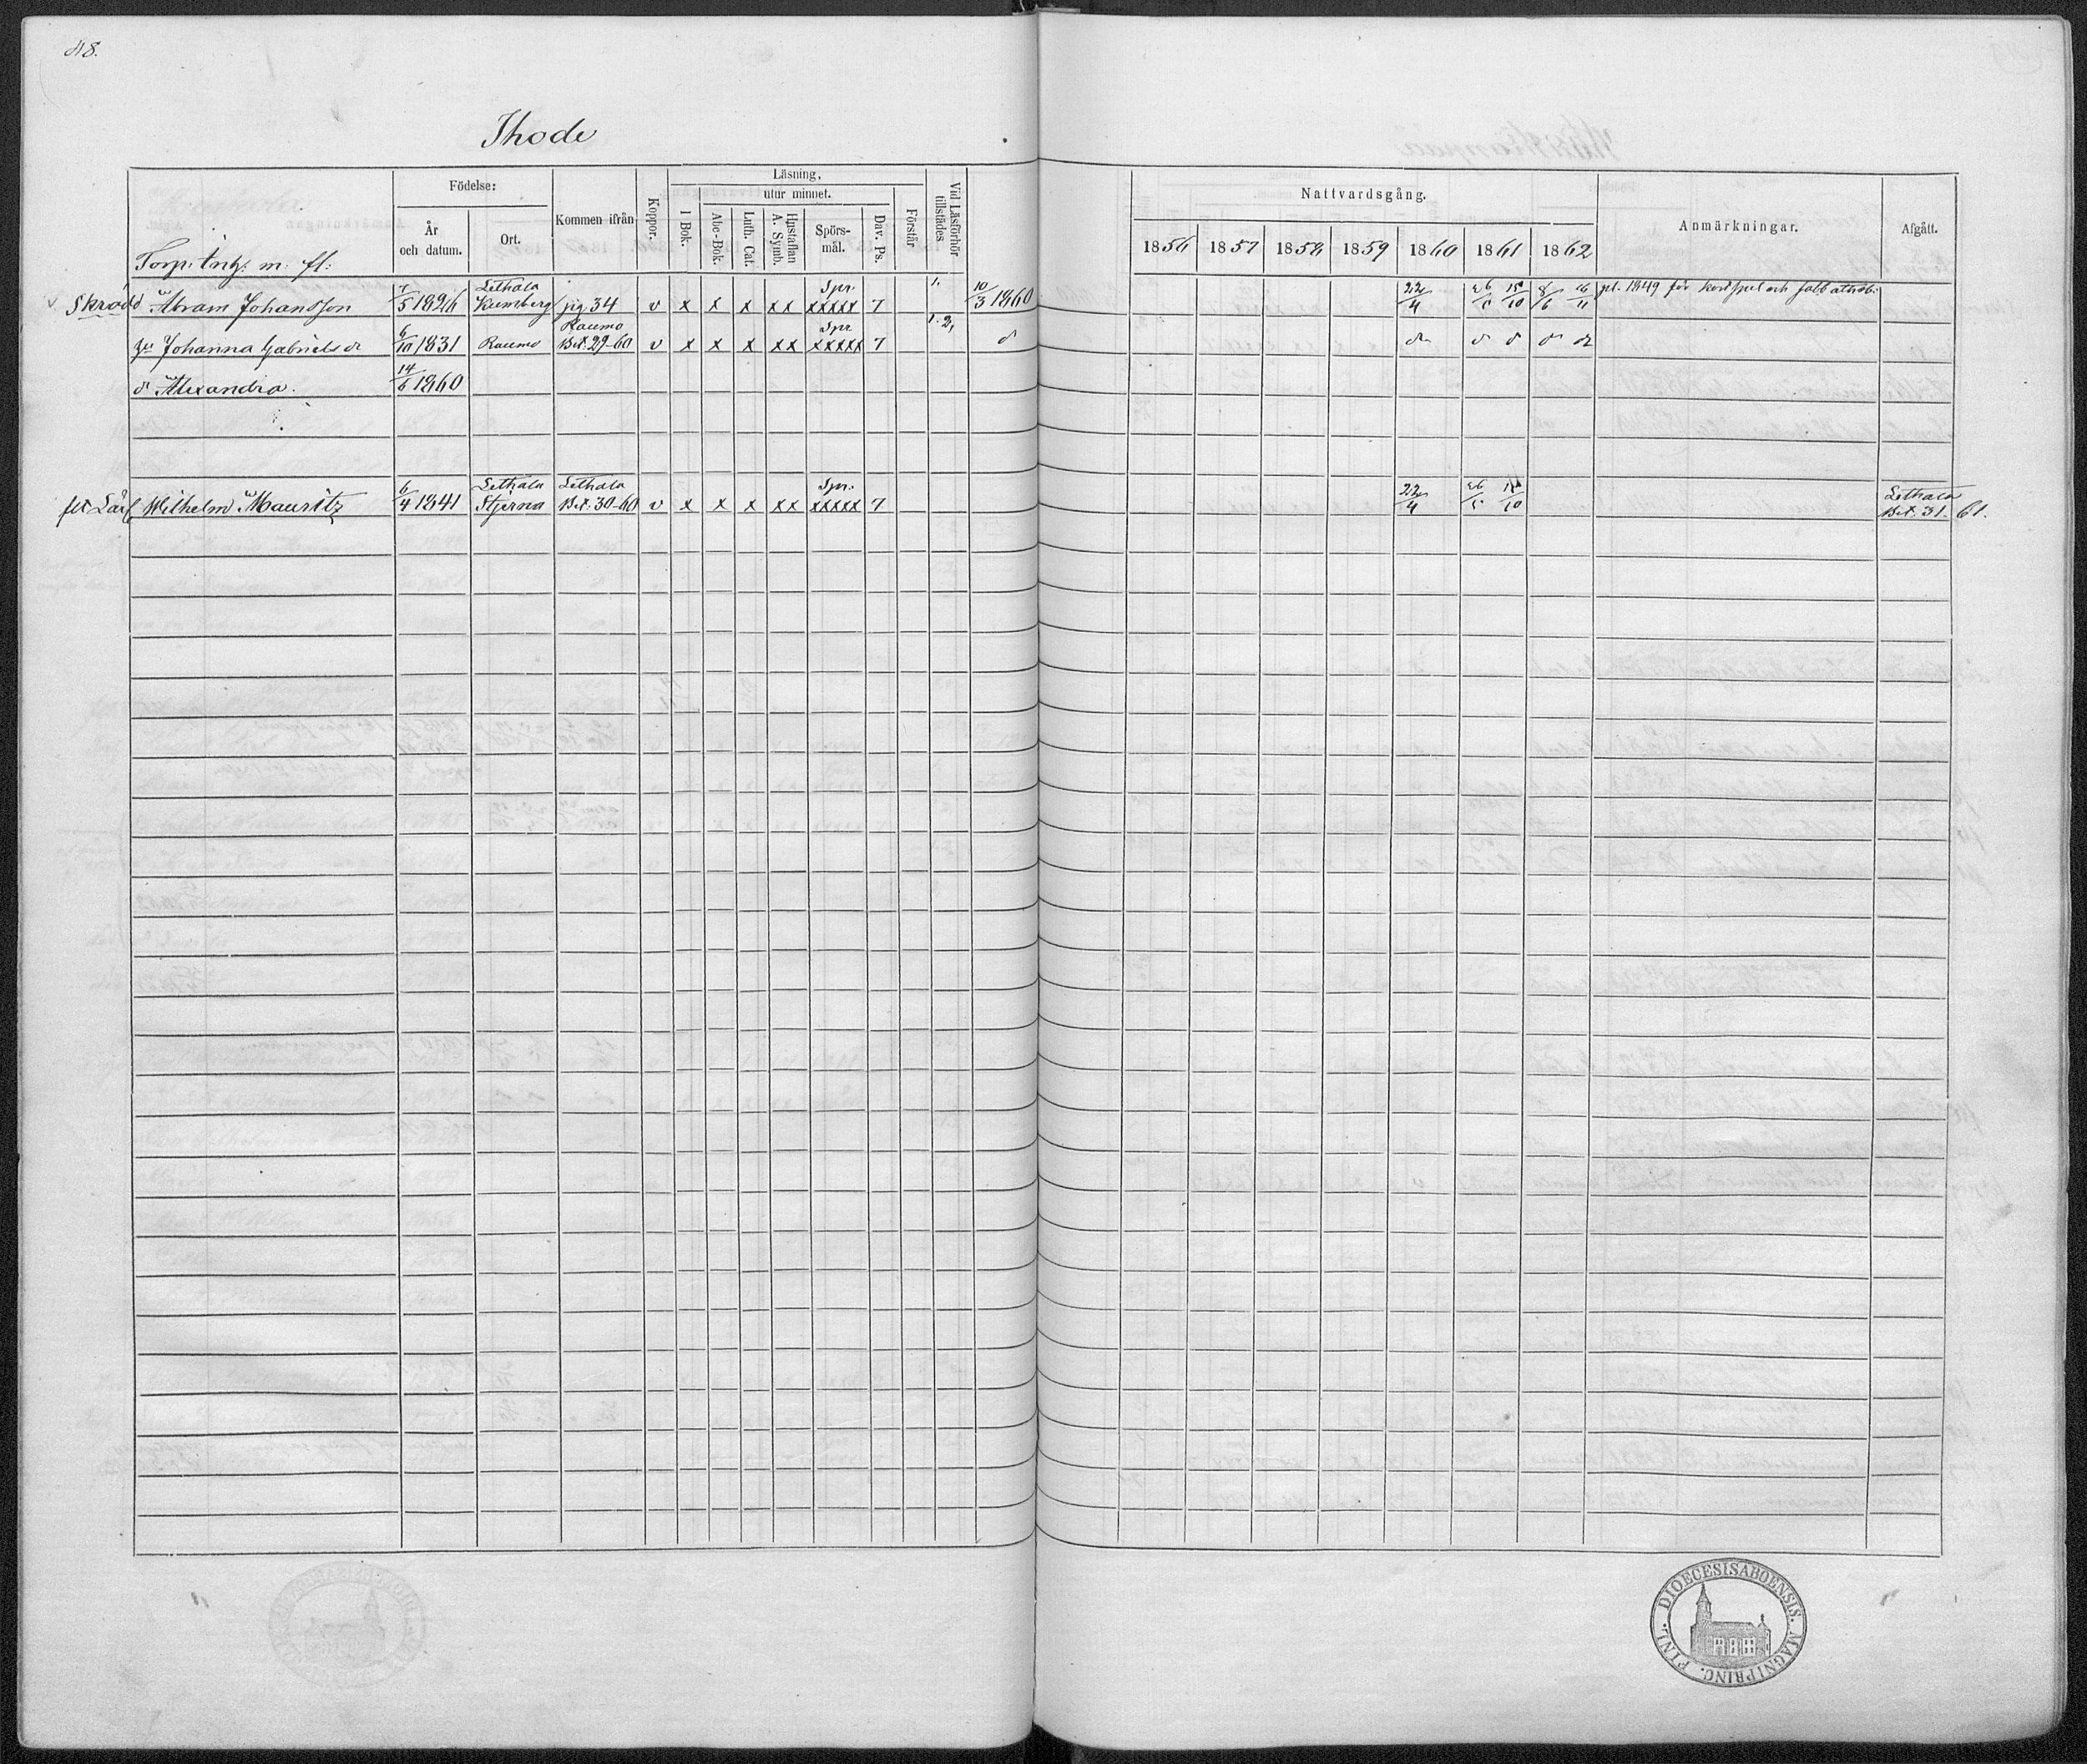 48.
Ihode
Födelse:
År och datum.
Ort.
Kommen ifrån
Koppor.
Läsning,
I Bok.
utur minnet.
Abc-Bok.
Luth. Cat.
Hustaflan A. Symb.
Spörs-mål.
Dav. Ps.
Förstår
Vid Läsförhör tillstädes
Nattvardsgång.
1856 1857 1858 1859 1860 1861 1862
Anmärkningar.
Afgått.
Torp: Enk: m: fl:
Skrädd Abram Johansson 7/5 1826 Lethala Kumberg pg 34 v x x x xx Spr. xxxxx 7 1. 10/3 1860 22/4 26/5 15/10 8/6 16/11 pl. 1849 för kortspel och
Johanna Gabrielsdr 6/10 1831 Raumo Raumo Bet. 29-60 v x x x xx Spr xxxxx 7 1. 2,
dr Alexandra. 14/6 1860
Lärl Wilhelm Mauritz 6/4 1841 Lethala Stjerna Lethala Bet. 30-60 v x x x xx Spr. xxxxx 7 22/4 26/5 15/10 Lethala Bet. 31-61.
DIOECESIS ABOENSIS. MAGNI PRINC. FINL.